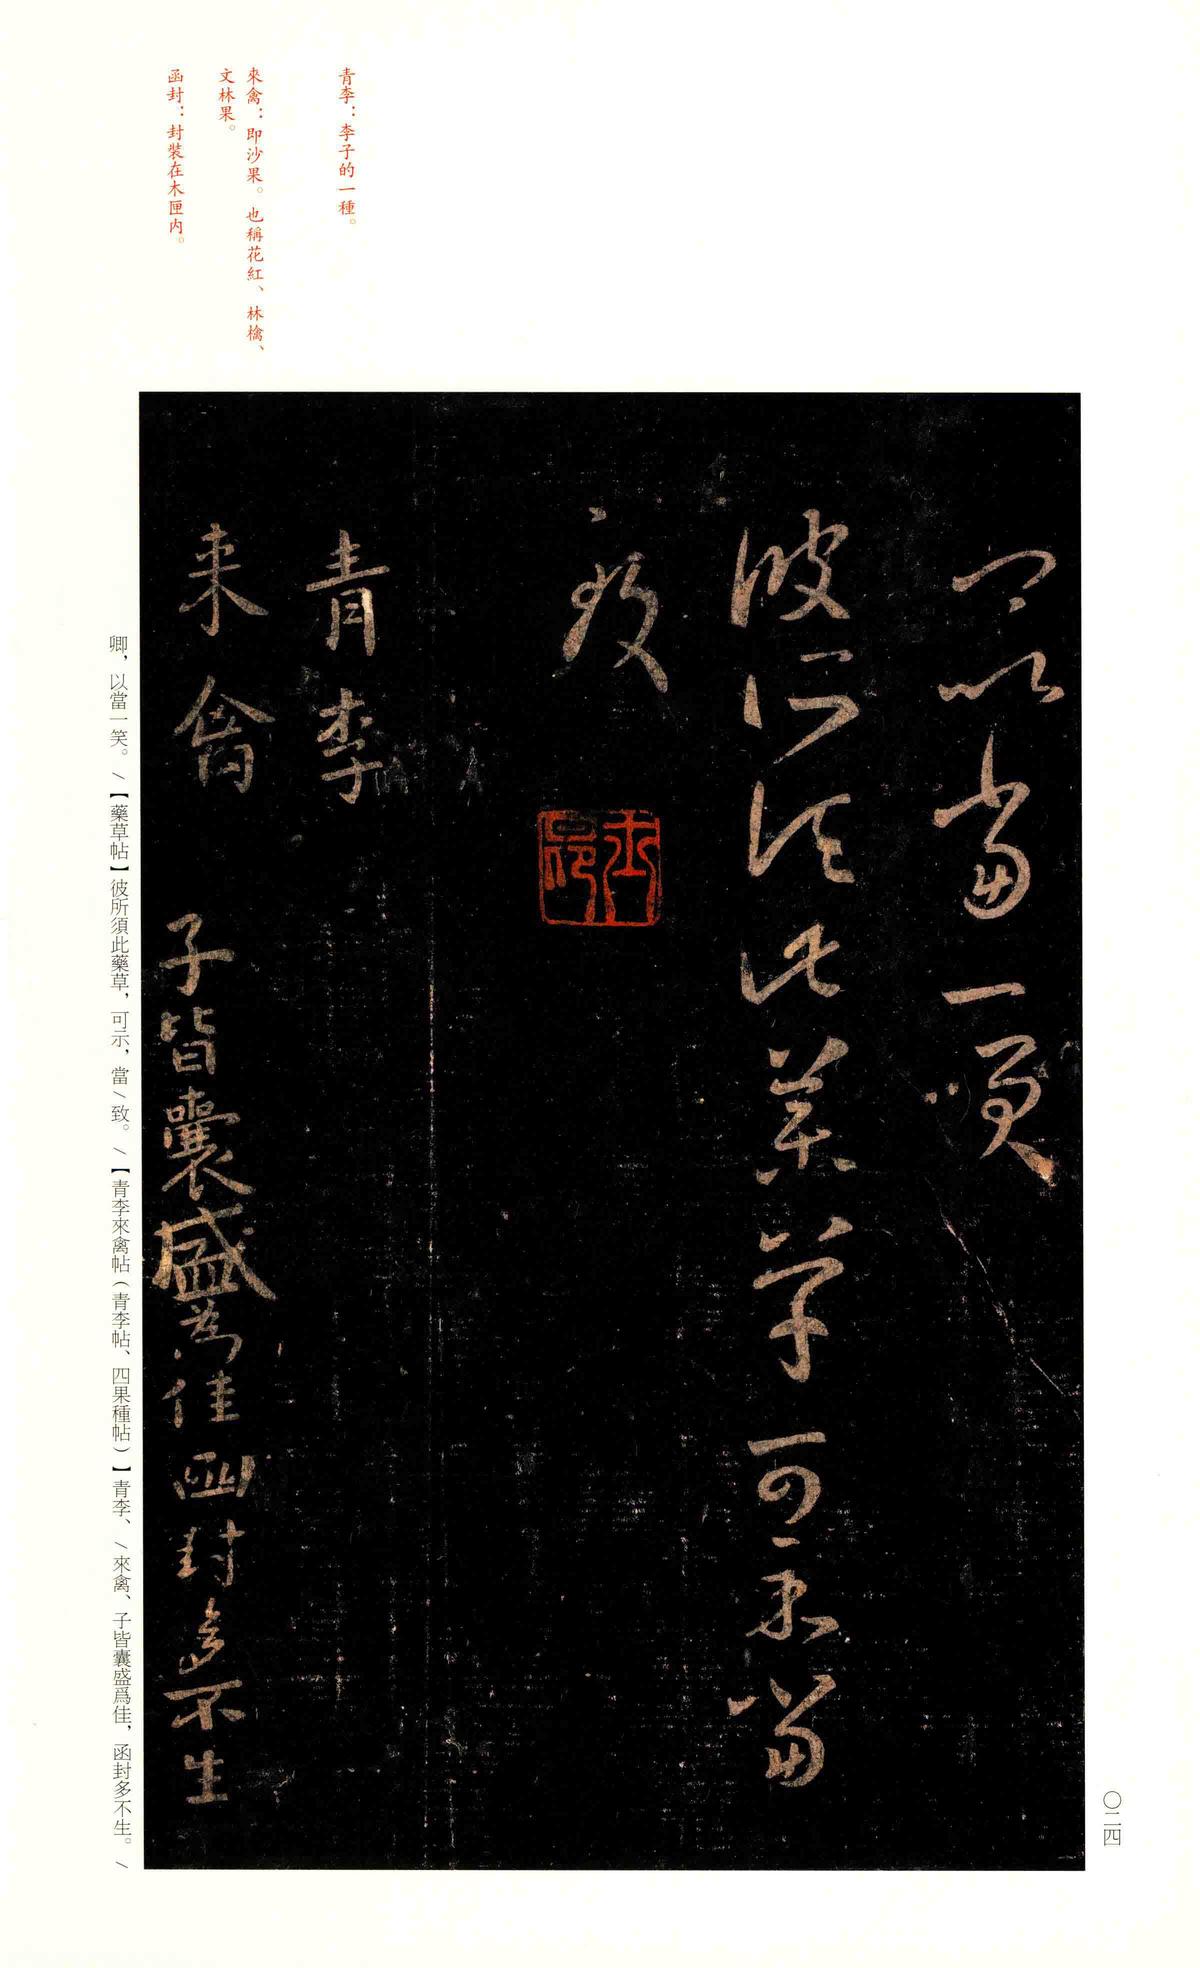 青李：李子的一種。
來禽：即沙果。也稱花紅、林檎、
文林果。
函封：封裝在木匣内。
卿以當一笑
彼所須此藥草可示當
致
青李
来禽 子皆囊盛為佳函封多不生
卿，以當一笑。/【藥草帖】彼所須此藥草，可示，當/致。/【青李來禽帖（青李帖、四果種帖）】青李、/來禽、子皆囊盛爲佳，函封多不生。/
〇二四